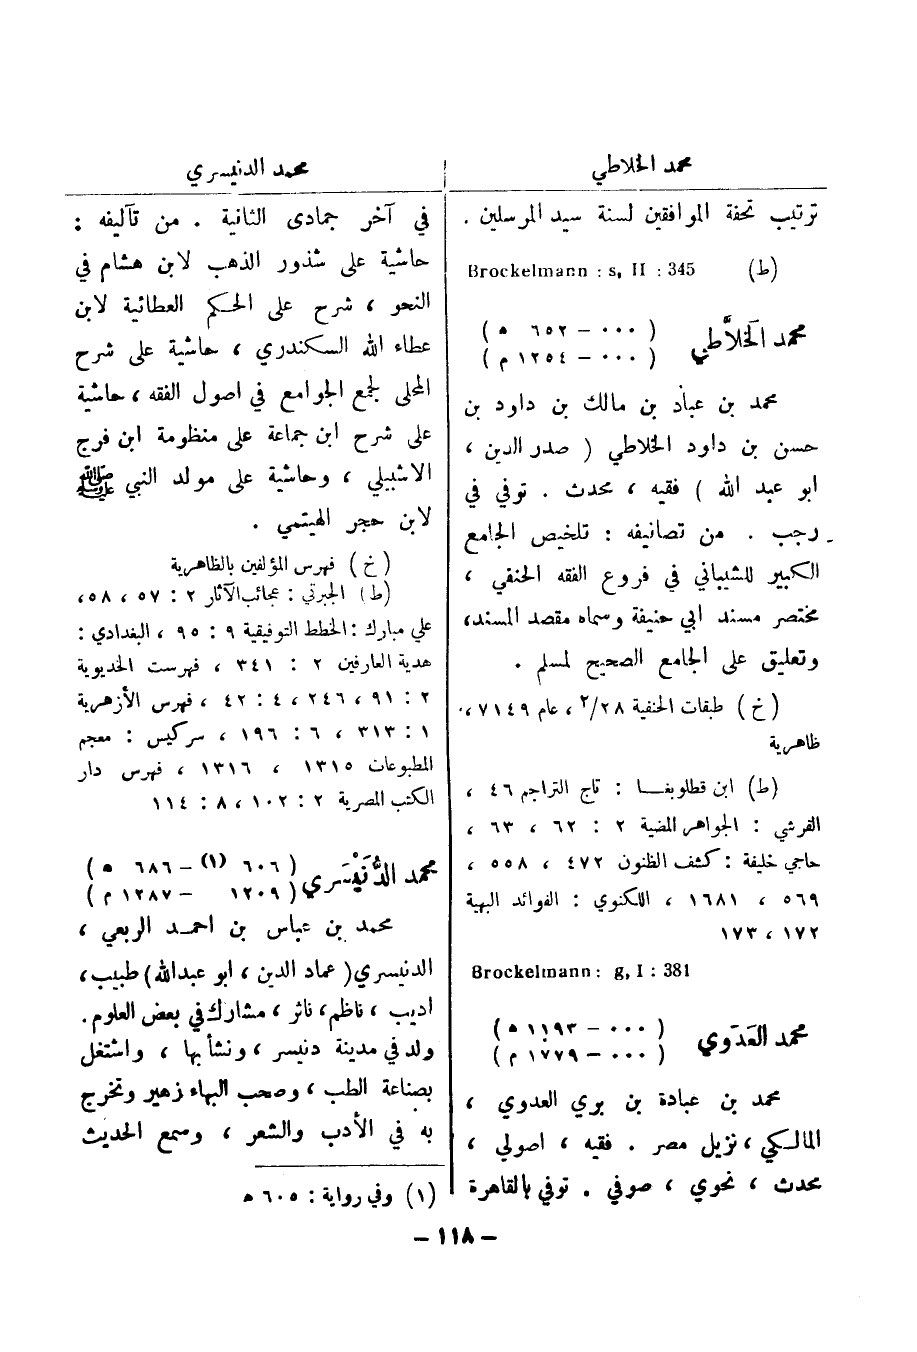 محمد الخلاطي
محمد الدنيسري
ترتيب تحفة الموافقين لسنة سيد المرسلين .
(ط) Brockelmann : s, II : 345
محمد الخَلاَّطي
( ٠٠٠ – ٦٥٢ ه )
( ٠٠٠ – ١٢٥٤ م )
محمد بن عباد بن مالك بن داود بن
حسن بن داود الخلاطي ( صدر الدين ،
ابو عبد الله ) فقيه ، محدث . توفي في
رجب . من تصانيفه : تلخيص الجامع
الكبير للشيباني في فروع الفقه الحنفي ،
مختصر مسند ابي حنيفة وسماه مقصد المسند،
وتعليق على الجامع الصحيح لمسلم .
(خ) طبقات الحنفية ٢/٢٨ ، عام ٧١٤٩ ،
ظاهرية
(ط) ابن قطلوبغا : تاج التراجم ٤٦ ،
القرشي : الجواهر المضية ٢ : ٦٢ ، ٦٣ ،
حاجي خليفة : كشف الظنون ٤٧٢ ، ٥٥٨ ،
٥٦٩ ، ١٦٨١ ، اللكنوي : الفوائد البهية
١٧٢ ، ١٧٣
Brockelmann : g, I : 381
محمد العَدَوي
( ٠٠٠ – ١١٩٣ ه )
( ٠٠٠ – ١٧٧٩ م )
محمد بن عبادة بن بري العدوي ،
المالكي ، نزيل مصر . فقيه ، اصولي ،
محدث ، نحوي ، صوفي . توفي بالقاهرة
في آخر جمادى الثانية . من تآليفه :
حاشية على شذور الذهب لابن هشام في
النحو ، شرح على الحكم العطائية لابن
عطاء الله السكندري ، حاشية على شرح
المحلى لجمع الجوامع في اصول الفقه ، حاشية
على شرح ابن جماعة على منظومة ابن فرج
الاشبيلي ، وحاشية على مولد النبي ﷺ
لابن حجر الهيتمي .
(خ) فهرس المؤلفين بالظاهرية
(ط) الجبرتي : عجائب الآثار ٢ : ٥٧ ، ٥٨ ،
علي مبارك : الخطط التوفيقية ٩ : ٩٥ ، البغدادي :
هدية العارفين ٢ : ٣٤١ ، فهرست الخديوية
٢ : ٩١ ، ٢٤٦ ، ٤ : ٤٢ ، فهرس الأزهرية
١ : ٣١٣ ، ٦ : ١٩٦ ، سركيس : معجم
المطبوعات ١٣١٥ ، ١٣١٦ ، فهرس دار
الكتب المصرية ٢ : ١٠٢ ، ٨ : ١١٤
محمد الدُّنَيْسَري
( ٦٠٦ (١) – ٦٨٦ ه )
( ١٢٠٩ – ١٢٨٧ م )
محمد بن عباس بن احمد الربعي ،
الدنيسري ( عماد الدين ، ابو عبدالله ) طبيب ،
اديب ، ناظم ، ناثر ، مشارك في بعض العلوم .
ولد في مدينة دنيسر ، ونشأ بها ، واشتغل
بصناعة الطب ، وصحب البهاء زهير وتخرج
به في الأدب والشعر ، وسمع الحديث
(١) وفي رواية : ٦٠٥ ه
– ١١٨ –